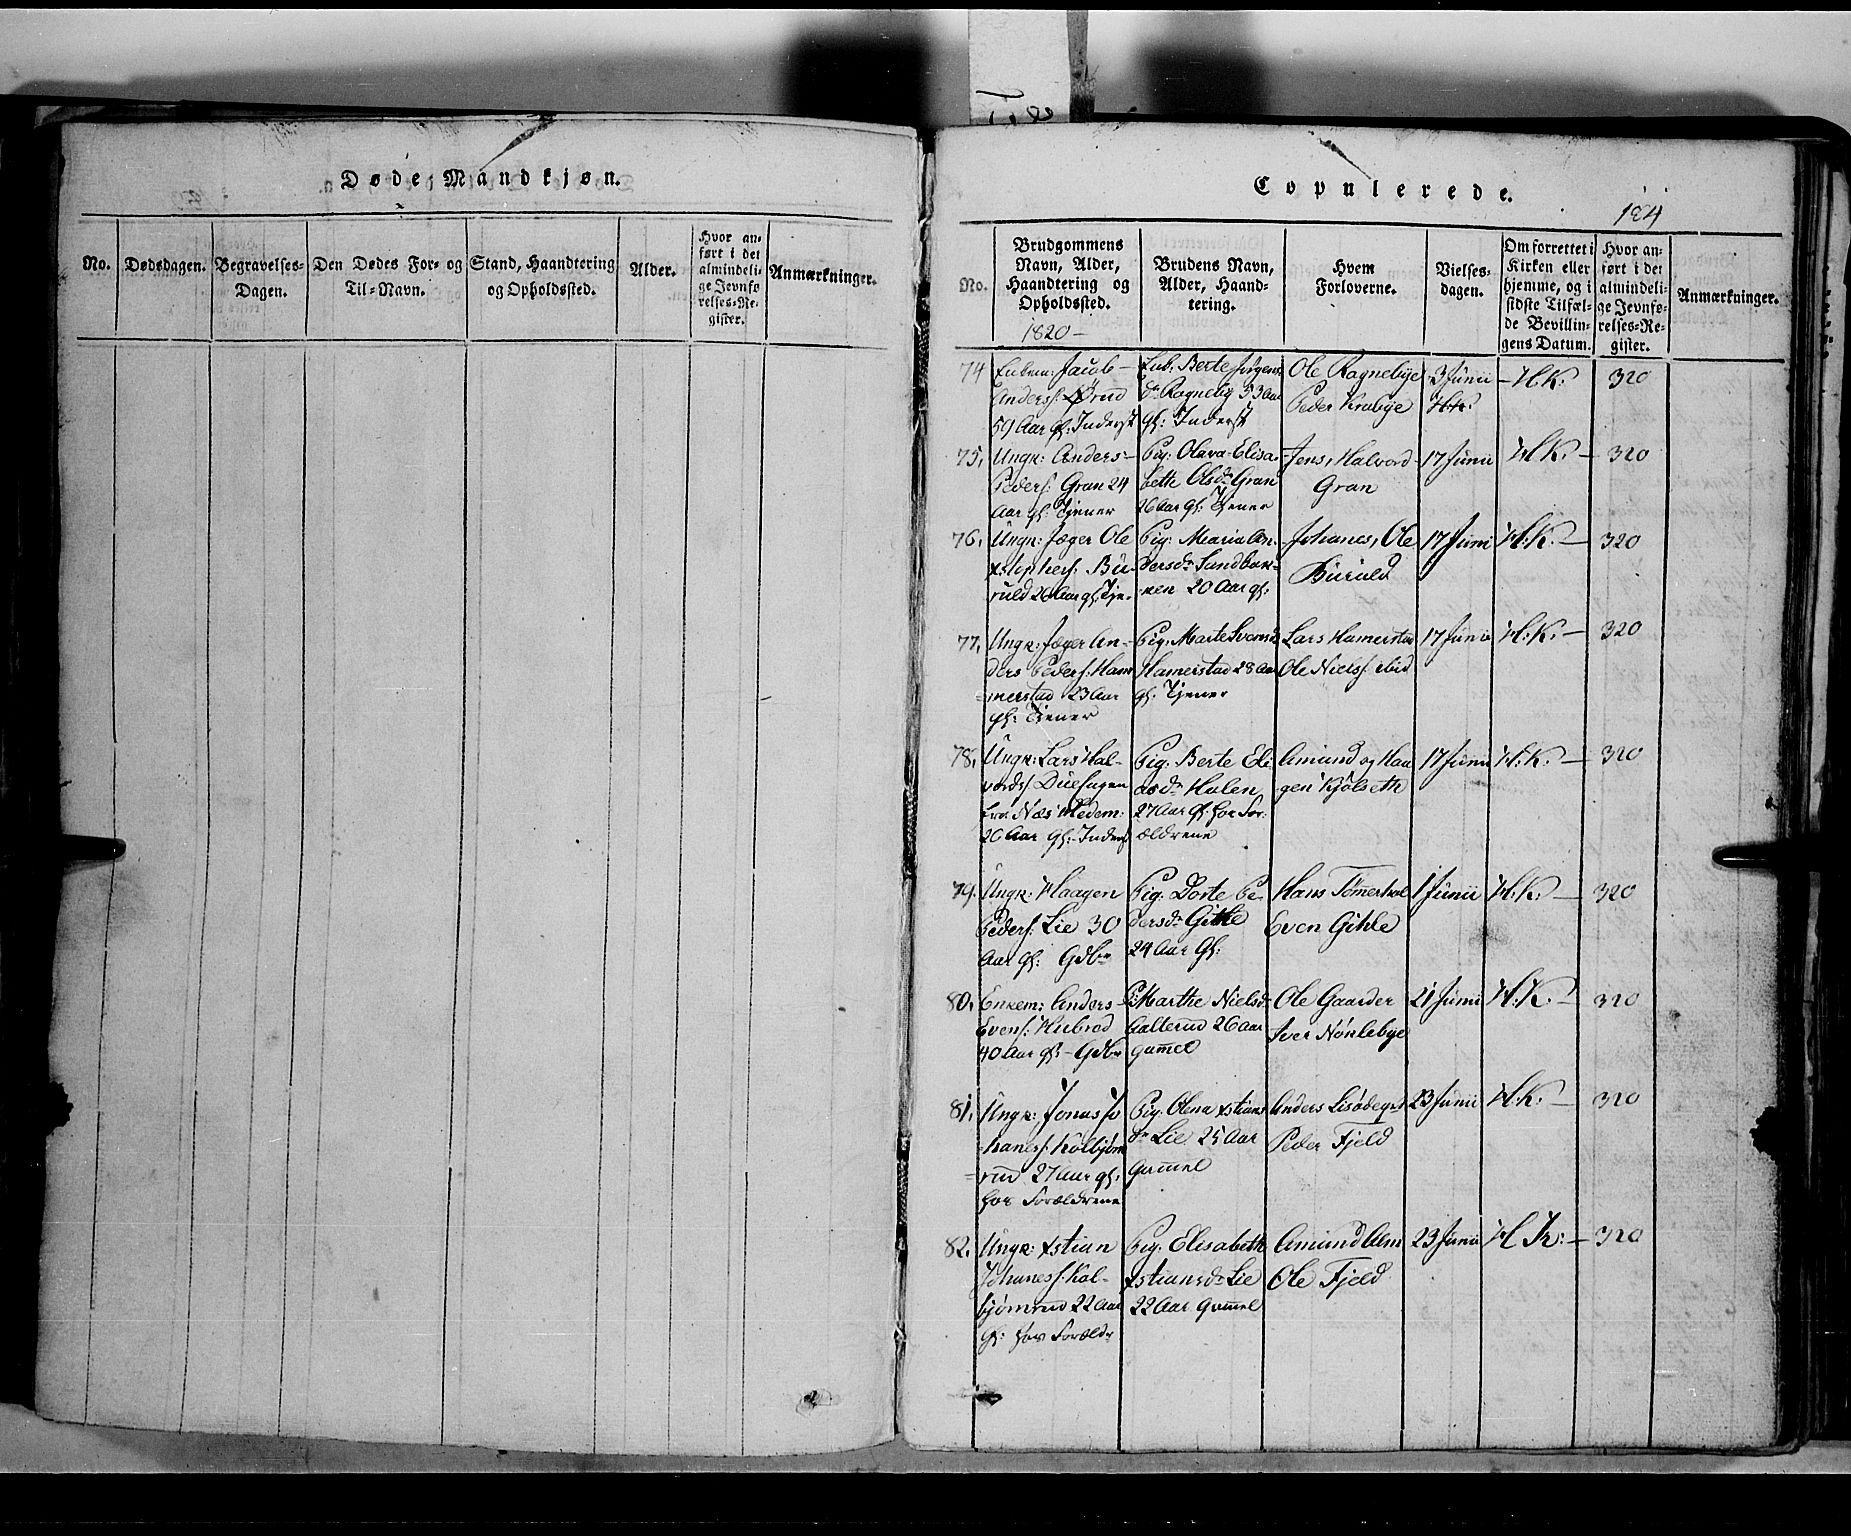 Døde Mandkjøn.
No.
Dødsdagen.
Begravelses-
Dagen.
Den Dødes For- og
Til-Navn.
Stand, Haandtering
og Opholdssted.
Alder.
Hvor an-
ført i det
almindeli-
ge Jevnfø
relses-Re-
gister.
Anmærkninger.
Copulerede.
184
No.
Brudgommens
Navn, Alder,
Haandtering og
Opholdssted.
Brudens Navn,
Alder, Haand-
tering.
Hvem
Forloverne.
Vielses-
dagen.
Om forrettet i
Kirken eller
hjemme, og i
sidste Tilfæl-
de Bevillin-
gens Datum.
Hvor an-
ført i det
almindeli-
ge Jevnfø-
relses-Re-
gister.
Anmærkninger.
1820-
74
Enkem: Jacob
Anders: Ørud
59 Aar gl: Inderst
Enk: Berte Jørgens
dr Ragneby 53 Aar
gl: Inderst
Ole Ragnebye
Peder Krabye
3 Junii
H.K.
H.K.
320
75,
Ungk: Anders
Peders: Gran 24
Aar gl: Tjener
Pig: Olava Elisa-
beth Olsdr Gran
26 Aar gl: Tjener
Jens, Halvord
Gran
17 Junii
H.K.
320
76,
Ungk: Jæger Ole
xstophers: Bu-
ruld 26 Aar gl: Tje-
Pig: Maria An-
dersdr Sandbak-
ken 20 Aar gl:
Johanes, Ole
Buruld
17 Juni
H.K.
320
77,
Ungk: Jæger An-
ders Peders: Ham
merstad 23 Aar
gl: Tjener
Pig: Marte Svensd
Hamerstad 28 Aar
gl: Tjener
Lars Hamerstad
Ole Niels: ibid
17 Junii
H.K.
320
78,
Ungk: Lars Hal-
vords: Duehagen
fra Næs Hedem:
20 Aar gl: Inders
Pig: Berte Eli
asdr Holen
27 Aar gl: hos For-
ældrene
Amund og Haa
gen Kjølseth
17 Junii
H.K.
320
79.
Ungk: Haagen
Peders: Lie 30
Aar gl: Gdbr
Pig: Dorte Pe-
dersdr Gihle
24 Aar gl:
Hans Tømerhol
Even Gihle
1 Junii
H.K.
320
80,
Enkem: Anders
Evens: Hubred
40 Aar gl: Gdbr
P: Marthe Nielsd:
Galterud 26 Aar
gammel
Ole Gaarder
Iver Nøklebye
21 Junii
H.K.
320
81,
Ungk: Jonas Jo
hanes: Kolbjørn
rud 27 Aar gl:
hos Forældrene
Pig: Olena xstians
dr Lie 25 Aar
Gammel
Anders Lisødegrd
Peder Fjeld
23 Junii
H.K.
320
82,
Ungk: xstian
Johanes: Kol-
bjørnrud 22 Aar
gl: hos Forældr
Pig: Elisabeth
xstiansdr Lie
22 Aar Gammel
Amund Alm
Ole Fjeld
23 Junii
H.K:
320